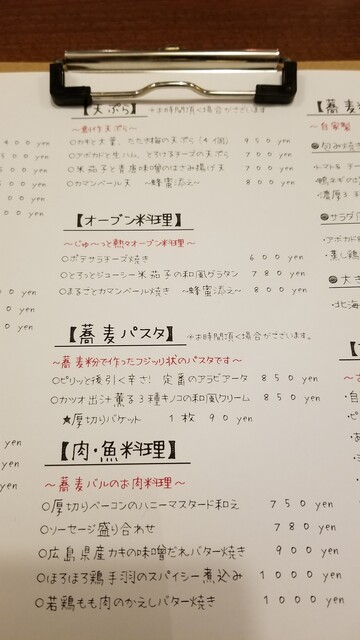 【天ぷら】 ※お時間頂く場合がございます
～創作天ぷら～
○カキと大葉、たたき梅の天ぷら(4個) 950 yen
○アボカドと生ハム、とろけるチーズの天ぷら 700 yen
○米茄子と青唐味噌のはさみ揚げ天 700 yen
○カマンベール天 ～蜂蜜添え～ 800 yen
【オーブン料理】
～じゅ～っと熱々オーブン料理～
○ポテサラチーズ焼き 600 yen
○とろっとジューシー米茄子の和風グラタン 780 yen
○まるごとカマンベール焼き ～蜂蜜添え～ 800 yen
【蕎麦パスタ】 ※お時間頂く場合がございます。
～蕎麦粉で作ったフジッリ状のパスタです～
○ピリッと後引く辛さ! 定番のアラビアータ 850 yen
○カツオ出汁薫る3種キノコの和風クリーム 850 yen
★厚切りバケット 1枚 90 yen
【肉・魚料理】
～蕎麦バルのお肉料理～
○厚切りベーコンのハニーマスタード和え 750 yen
○ソーセージ盛り合わせ 780 yen
○広島県産カキの味噌だれバター焼き 900 yen
○ほろほろ鶏手羽のスパイシー煮込み 1000 yen
○若鶏もも肉のかえしバター焼き 1000 yen